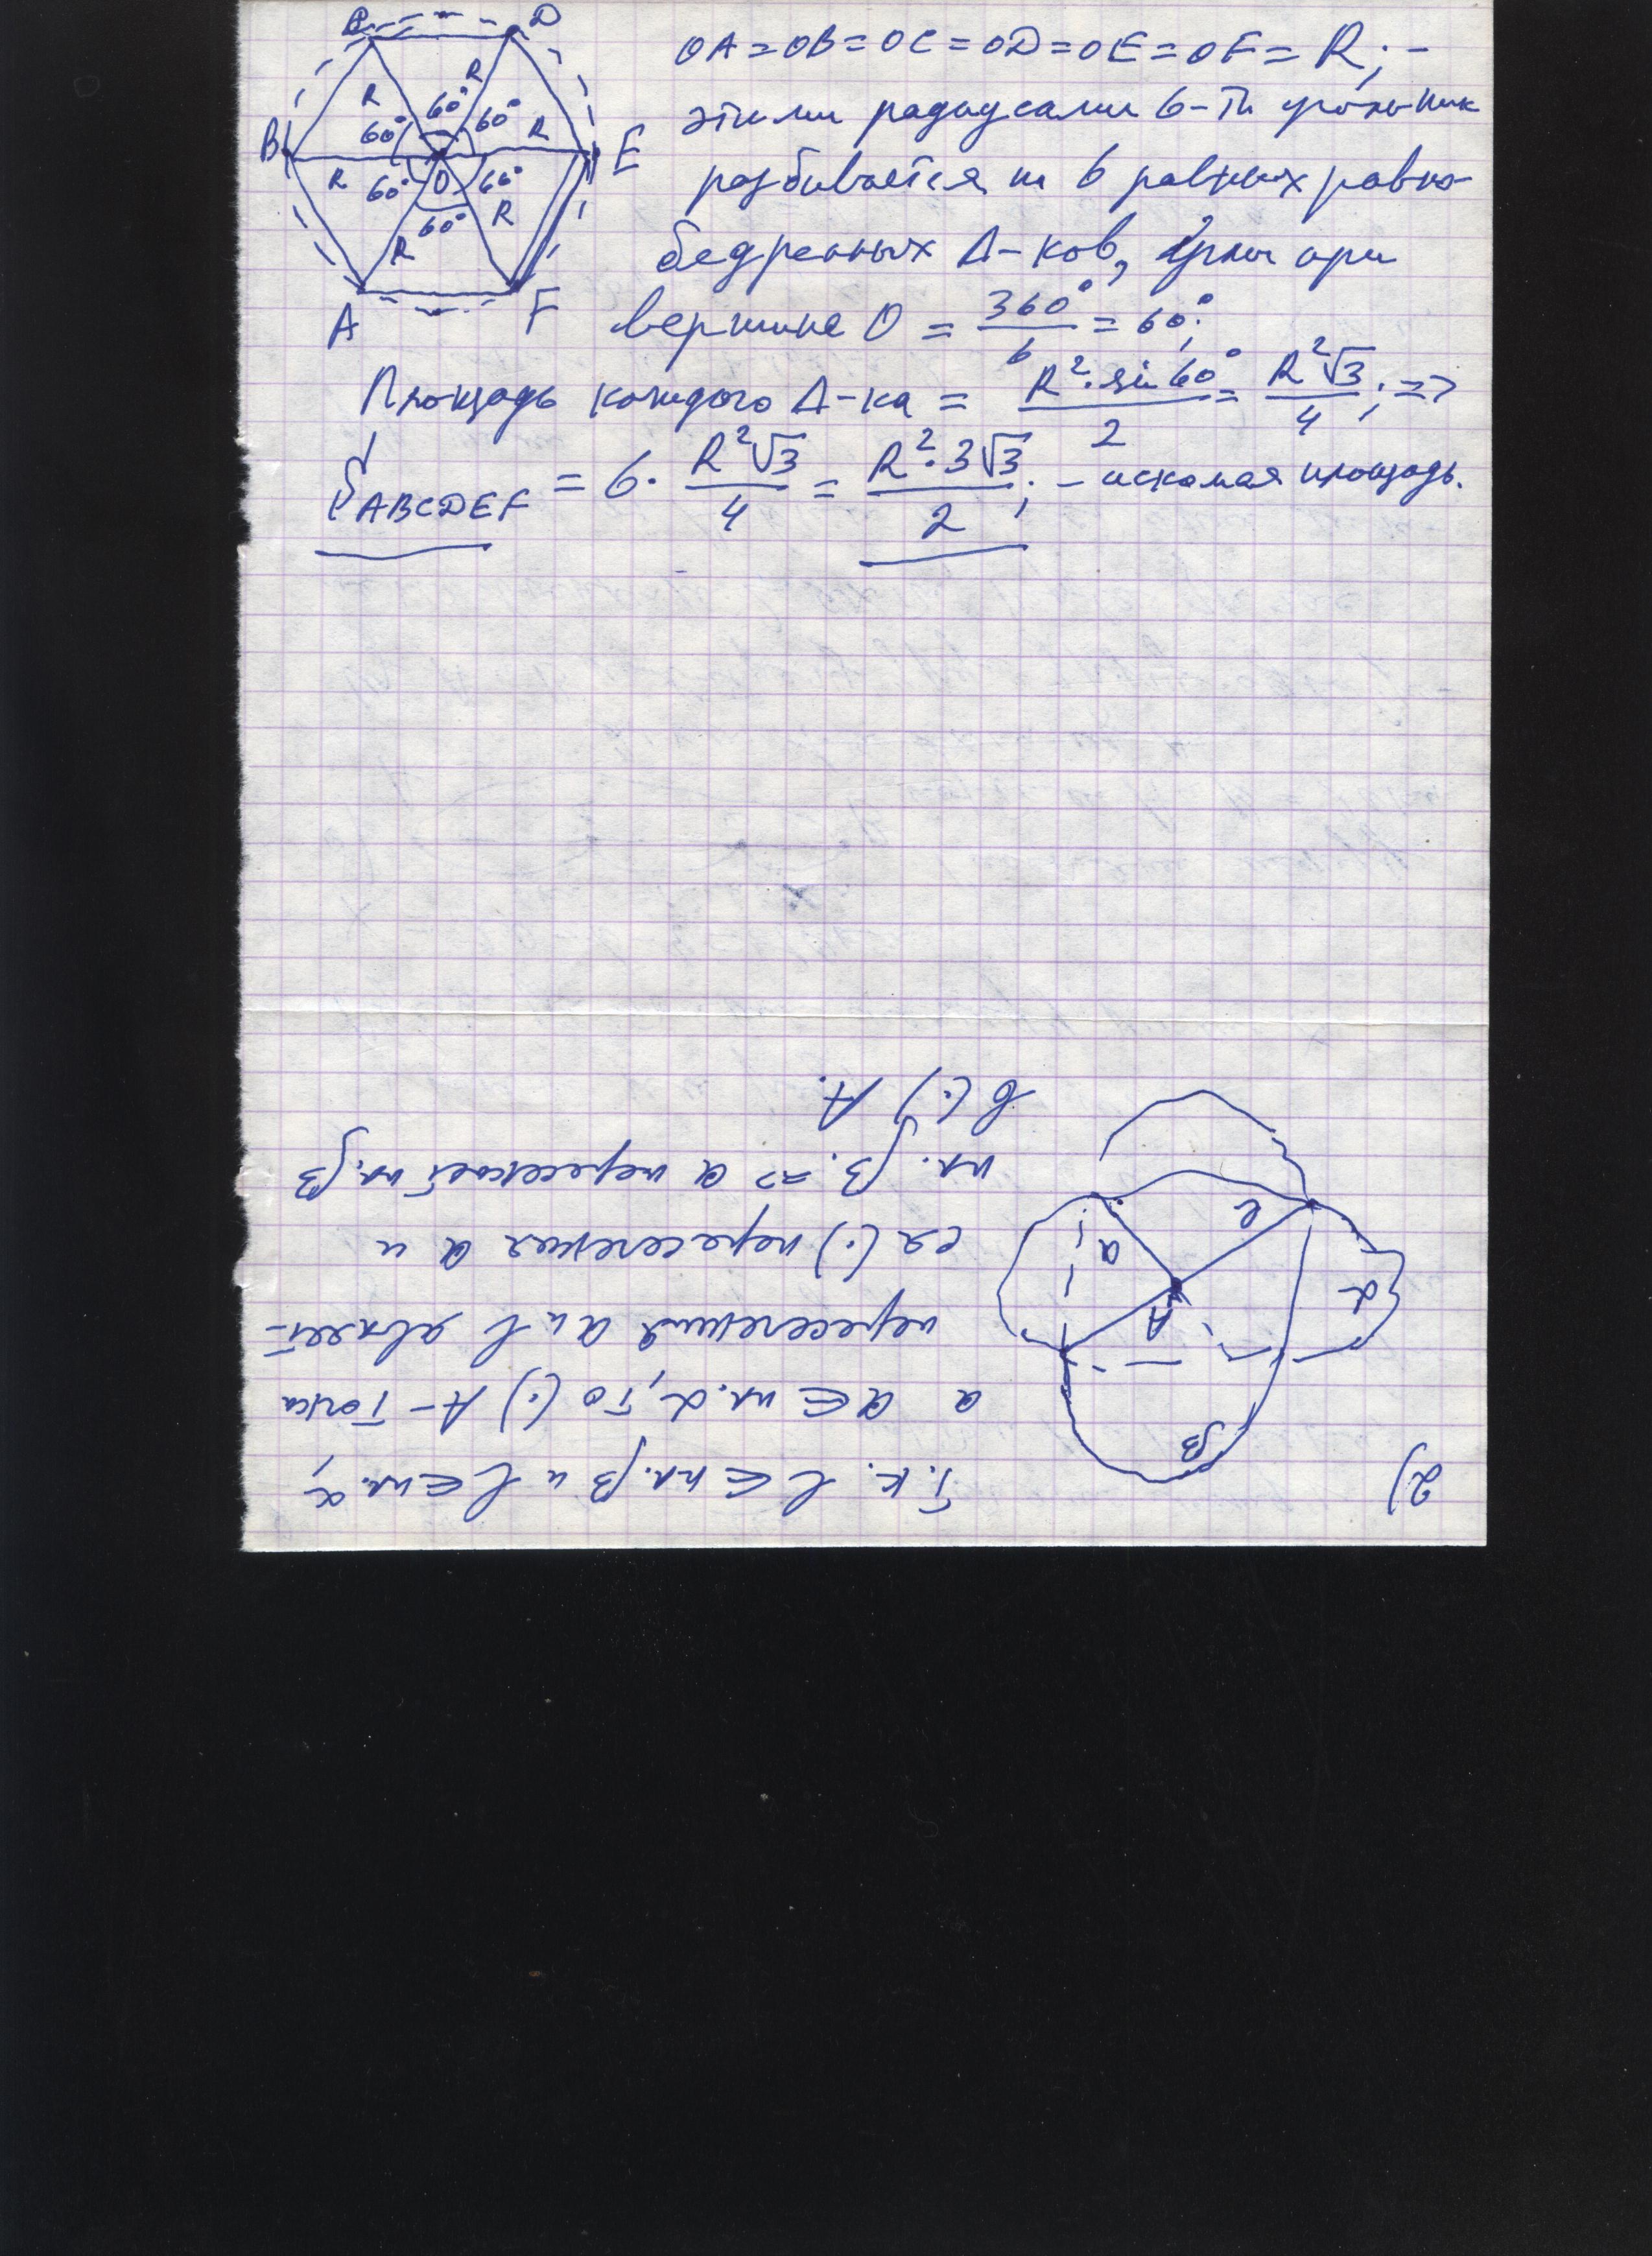 C D
B E
A F
O
R R R R R R
60° 60° 60° 60° 60° 60°
OA = OB = OC = OD = OE = OF = R; –
этими радиусами 6-ти угольник
разбивается на 6 равных равно-
бедренных Δ-ков, углы при
вершине O = 360°/6 = 60°;
Площадь каждого Δ-ка = R²·sin60°/2 = R²√3/4; =>
S ABCDEF = 6· R²√3/4 = R²·3√3/2; – искомая площадь.
2)
β
α
A
a
в
Т.к. в ∈ пл. β и в ∈ пл. α,
а a ∈ пл. α, то (·) A – точка
пересечения a и в являет-
ся (·) пересечения a и
пл. β. => a пересекает пл. β
в (·) A.